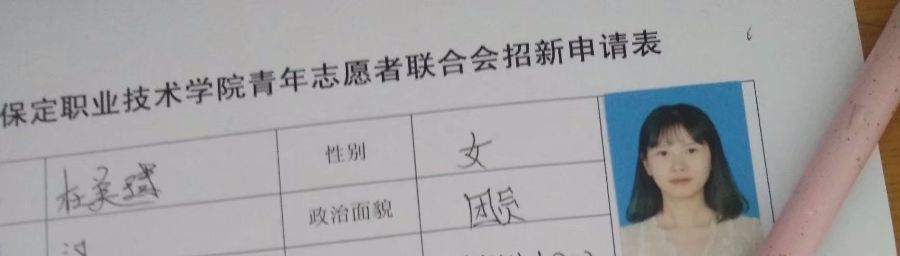 保定职业技术学院青年志愿者联合会招新申请表
性别 女
政治面貌 团员